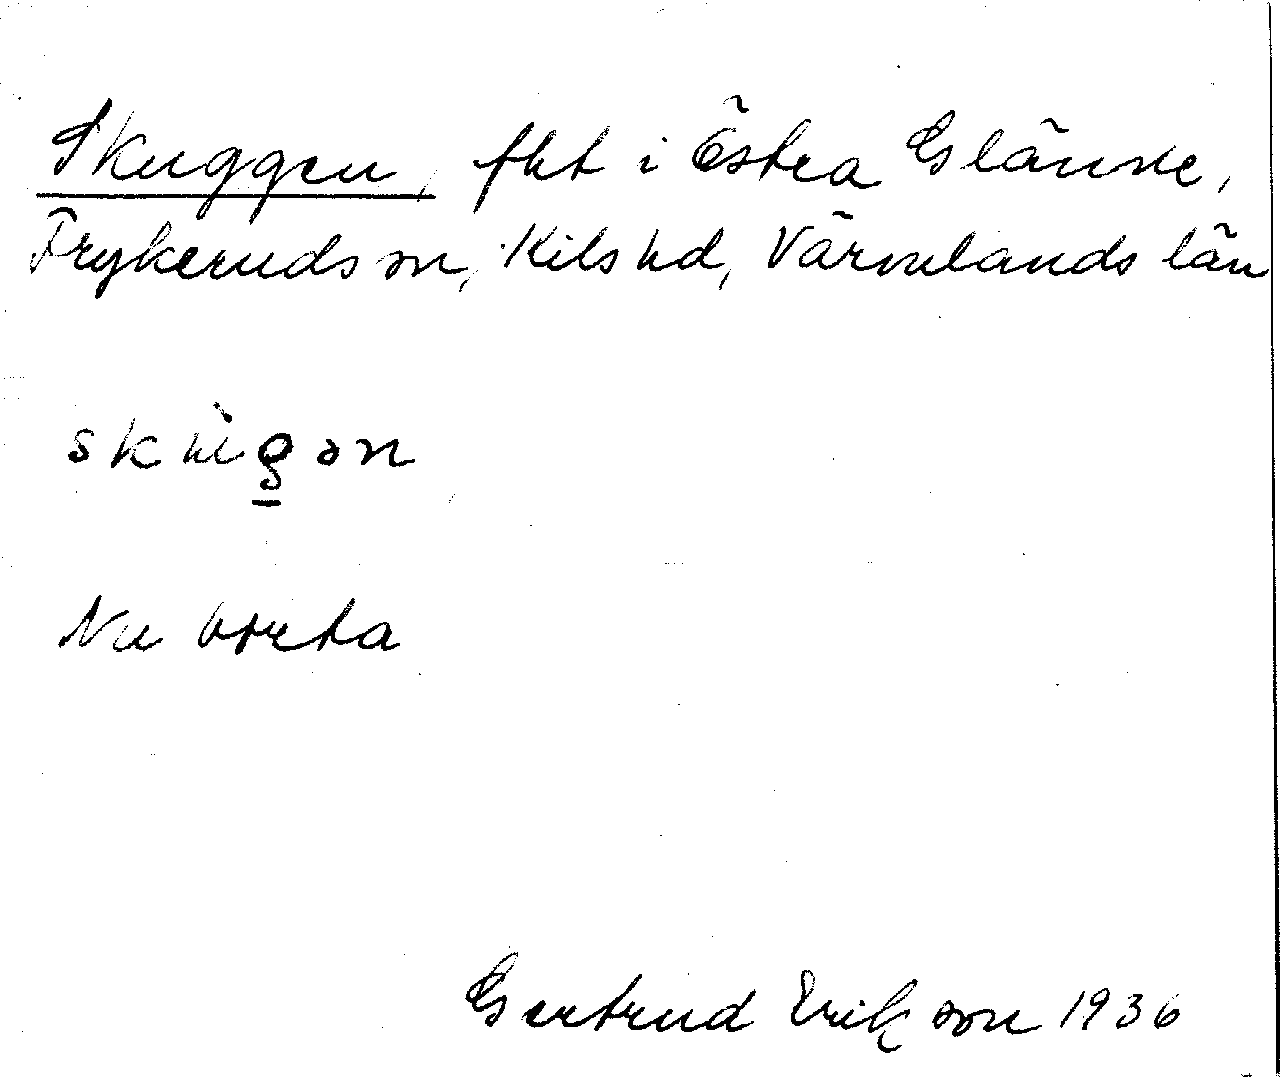 Skuggen, fht i Östra Glänne,
Frykeruds sn, Kils hd, Värmlands län
skùgən
Nu borta
Gertrud Erikson 1936